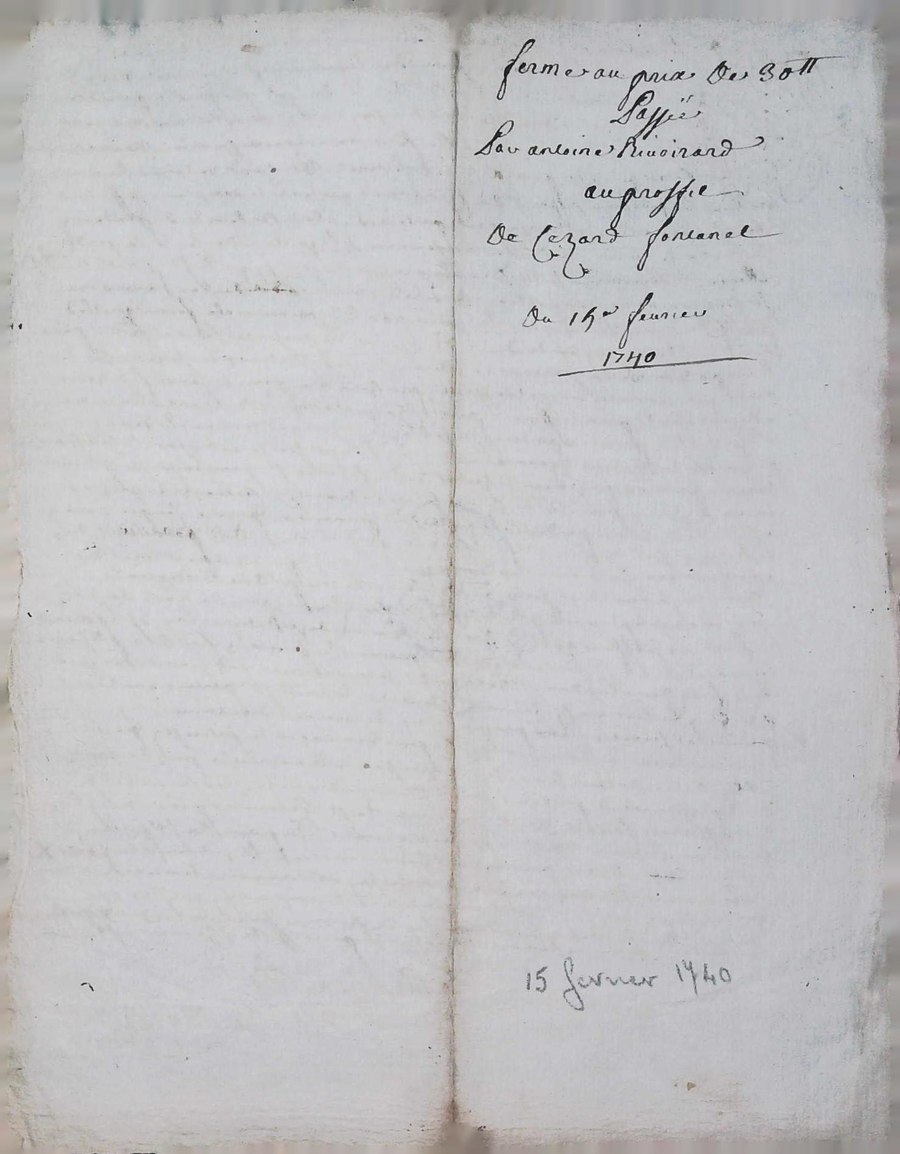 ferme au prix de 30tt
Passëe
Par antoine Riuoirard
au proffit
De Cezard fontanel
Du 15e feurier
1740
15 fevrier 1740